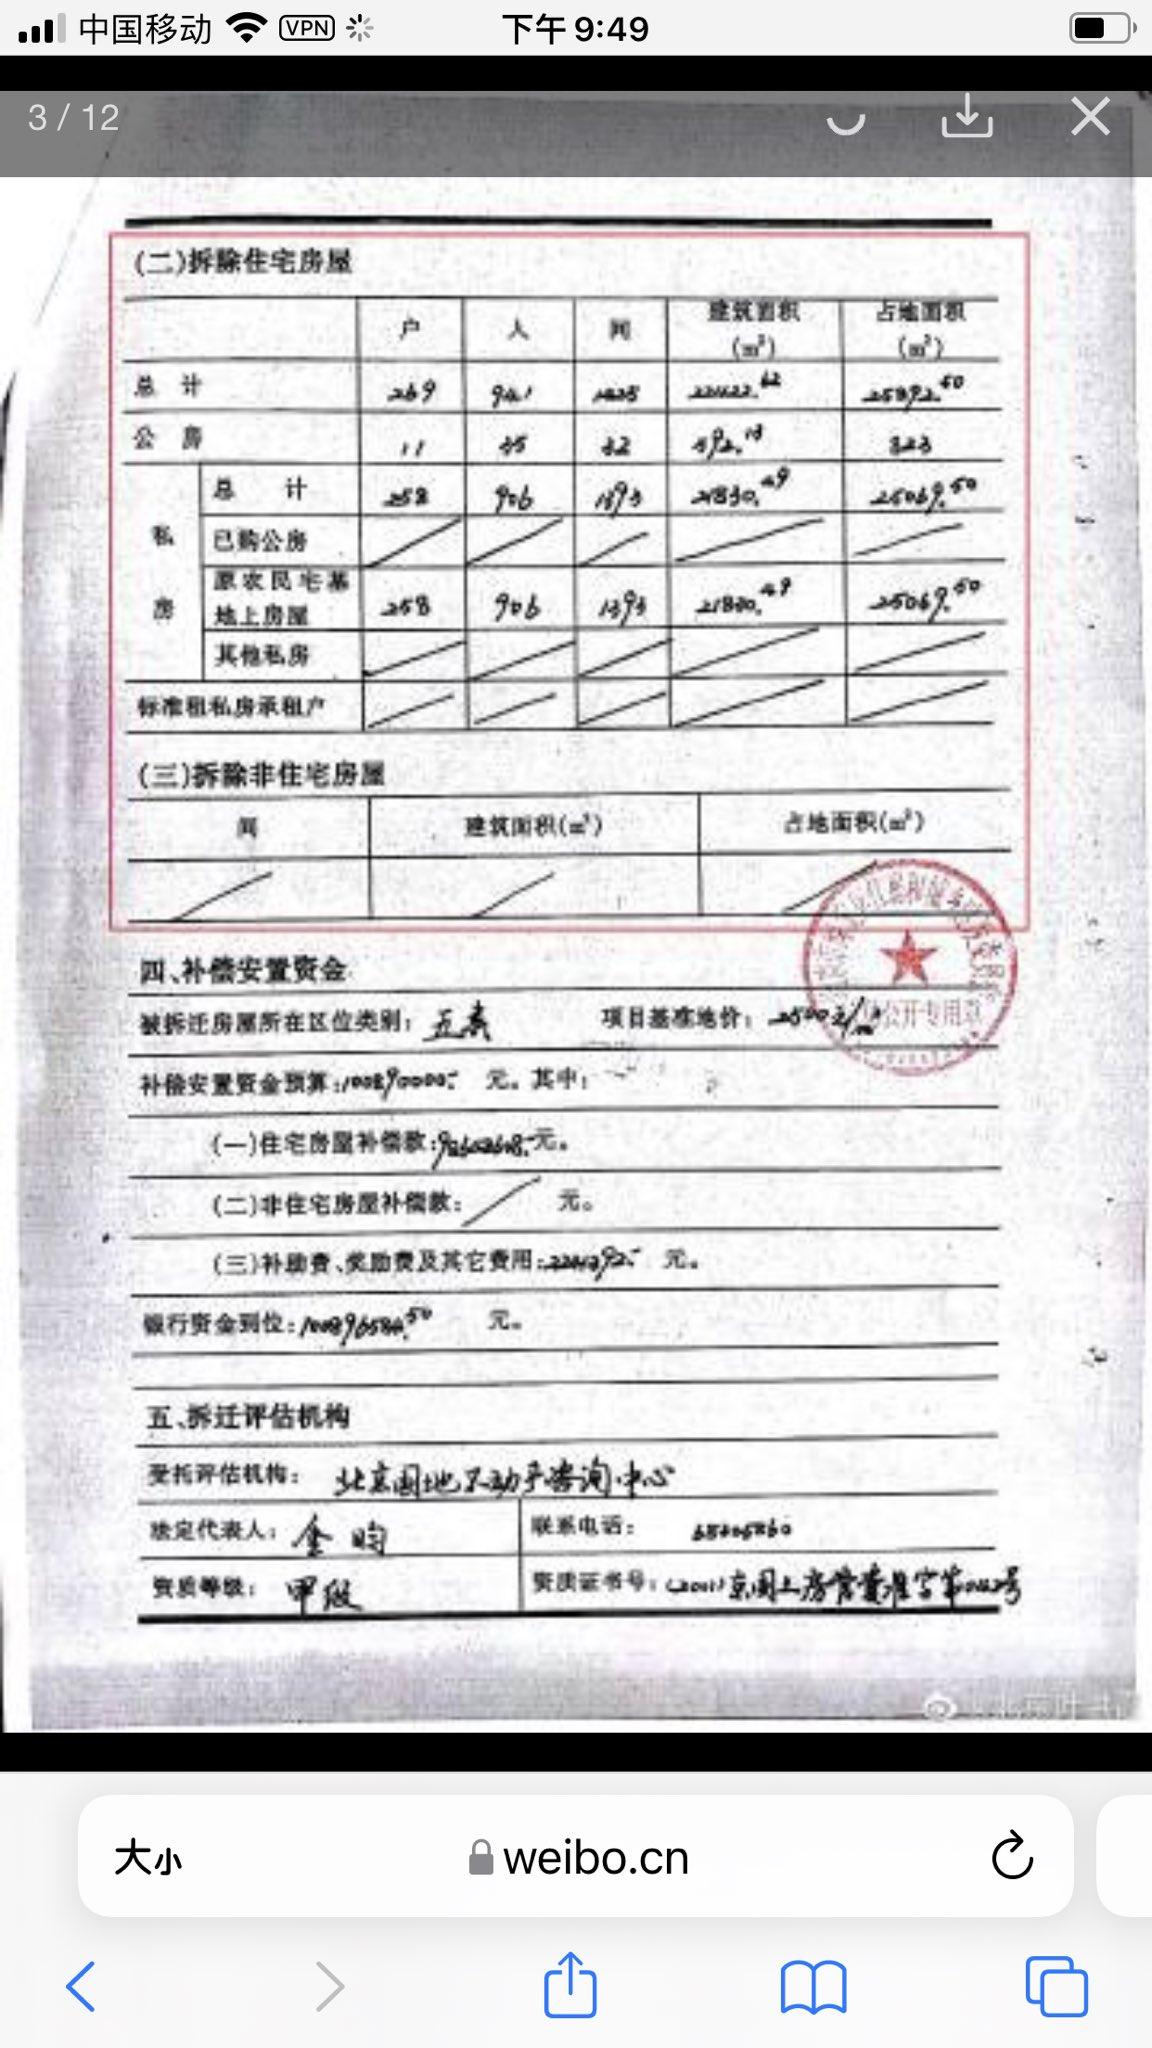 中国移动 VPN 下午 9:49
3 / 12
(二)拆除住宅房屋
户 人 间 建筑面积(m²) 占地面积(m²)
总 计 269 941 1425 22422.62 25892.50
公 房 11 35 32 592.13 823
私房
总 计 258 906 1393 21830.49 25069.50
已购公房
原农民宅基地上房屋 258 906 1393 21830.49 25069.50
其他私房
标准租私房承租户
(三)拆除非住宅房屋
间 建筑面积(m²) 占地面积(m²)
公开专用章
四、补偿安置资金
被拆迁房屋所在区位类别: 五类 项目基准地价:
补偿安置资金预算:100890000 元。其中:
(一)住宅房屋补偿款: 元。
(二)非住宅房屋补偿款: 元。
(三)补助费、奖励费及其它费用: 元。
银行资金到位: 元。
五、拆迁评估机构
受托评估机构: 北京国地不动产咨询中心
法定代表人: 金昀 联系电话:
资质等级: 甲级 资质证书号:
大小 weibo.cn